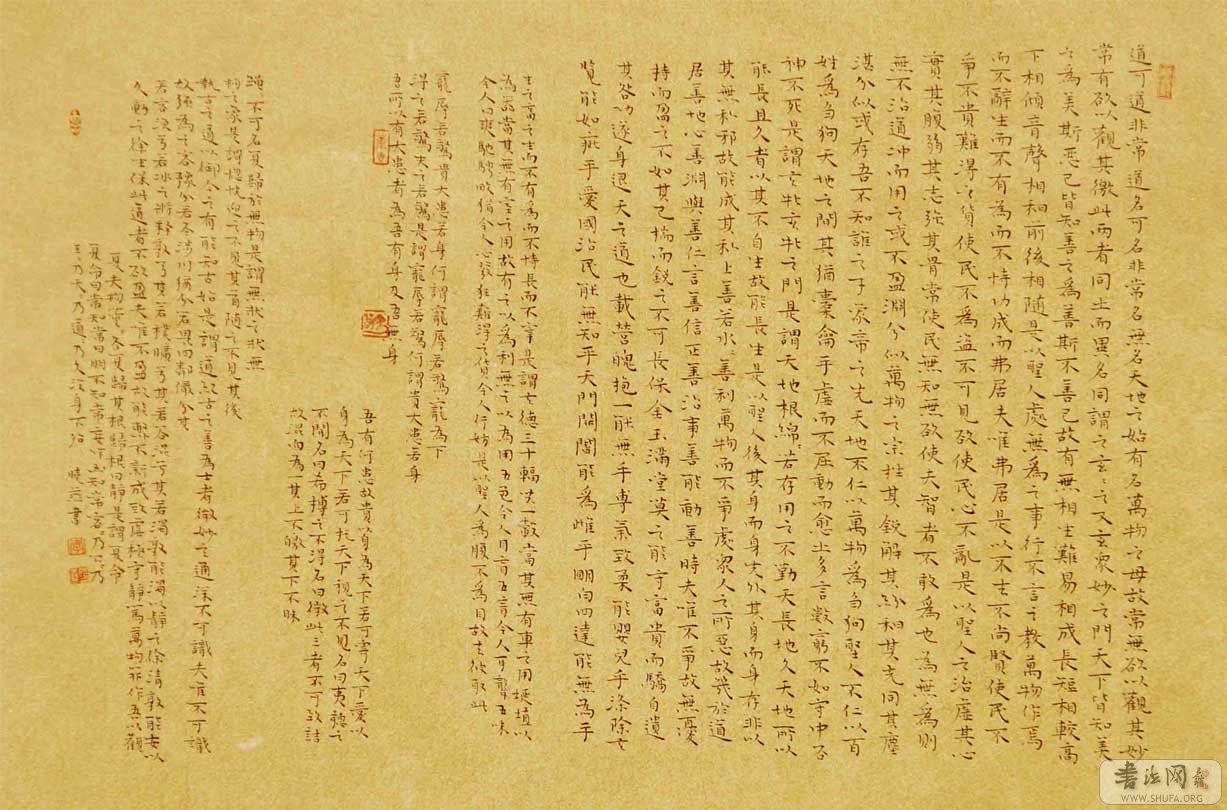 道可道非常道名可名非常名無名天地之始有名萬物之母故常無欲以觀其妙
常有欲以觀其徼此兩者同出而異名同謂之玄玄之又玄眾妙之門天下皆知美
之為美斯惡已皆知善之為善斯不善已故有無相生難易相成長短相較高
下相傾音聲相和前後相隨是以聖人處無為之事行不言之教萬物作焉
而不辭生而不有為而不恃功成而弗居夫唯弗居是以不去不尚賢使民不
爭不貴難得之貨使民不為盜不可見欲使民心不亂是以聖人之治虛其心
實其腹弱其志強其骨常使民無知無欲使夫智者不敢為也為無為則
無不治道沖而用之或不盈淵兮似萬物之宗挫其銳解其紛和其光同其塵
湛兮似或存吾不知誰之子象帝之先天地不仁以萬物為芻狗聖人不仁以百
姓為芻狗天地之間其猶橐龠乎虛而不屈動而愈出多言數窮不如守中谷
神不死是謂玄牝玄牝之門是謂天地根綿綿若存用之不勤天長地久天地所以
能長且久者以其不自生故能長生是以聖人後其身而身先外其身而身存非以
其無私邪故能成其私上善若水善利萬物而不爭處眾人之所惡故幾於道
居善地心善淵與善仁言善信正善治事善能動善時夫唯不爭故無憂
持而盈之不如其已揣而銳之不可長保金玉滿堂莫之能守富貴而驕自遺
其咎功遂身退天之道也載營魄抱一能無乎專氣致柔能嬰兒乎滌除玄
覽能如疵乎愛國治民能無知乎天門開闔能為雌乎明白四達能無為乎
生之畜之生而不有為而不恃長而不宰是謂玄德三十輻共一轂當其無有車之用埏埴以
為器當其無有室之用故有之以為利無之以為用五色令人目盲五音令人耳聾五味
令人口爽馳騁畋獵令人心發狂難得之貨令人行妨是以聖人為腹不為目故去彼取此
寵辱若驚貴大患若身何謂寵辱若驚寵為下
得之若驚失之若驚是謂寵辱若驚何謂貴大患若身
吾所以有大患者為吾有身及吾無身
吾有何患故貴以身為天下若可寄天下愛以
身為天下若可托天下視之不見名曰夷聽之
不聞名曰希搏之不得名曰微此三者不可致詰
故混而為一其上不皦其下不昧
繩繩不可名復歸於無物是謂無狀之狀無
物之象是謂惚恍迎之不見其首隨之不見其後
執古之道以御今之有能知古始是謂道紀古之善為士者微妙玄通深不可識夫唯不可識
故強為之容豫兮若冬涉川猶兮若畏四鄰儼兮其
若客渙兮若冰之將釋敦兮其若樸曠兮其若谷混兮其若濁孰能濁以靜之徐清孰能安以
久動之徐生保此道者不欲盈夫唯不盈故能蔽不新成致虛極守靜篤萬物並作吾以觀
復夫物芸芸各復歸其根歸根曰靜是謂復命
復命曰常知常曰明不知常妄作凶知常容容乃公公乃
王王乃天天乃道道乃久沒身不殆 曉芸書
書法网
WWW.SHUFA.ORG